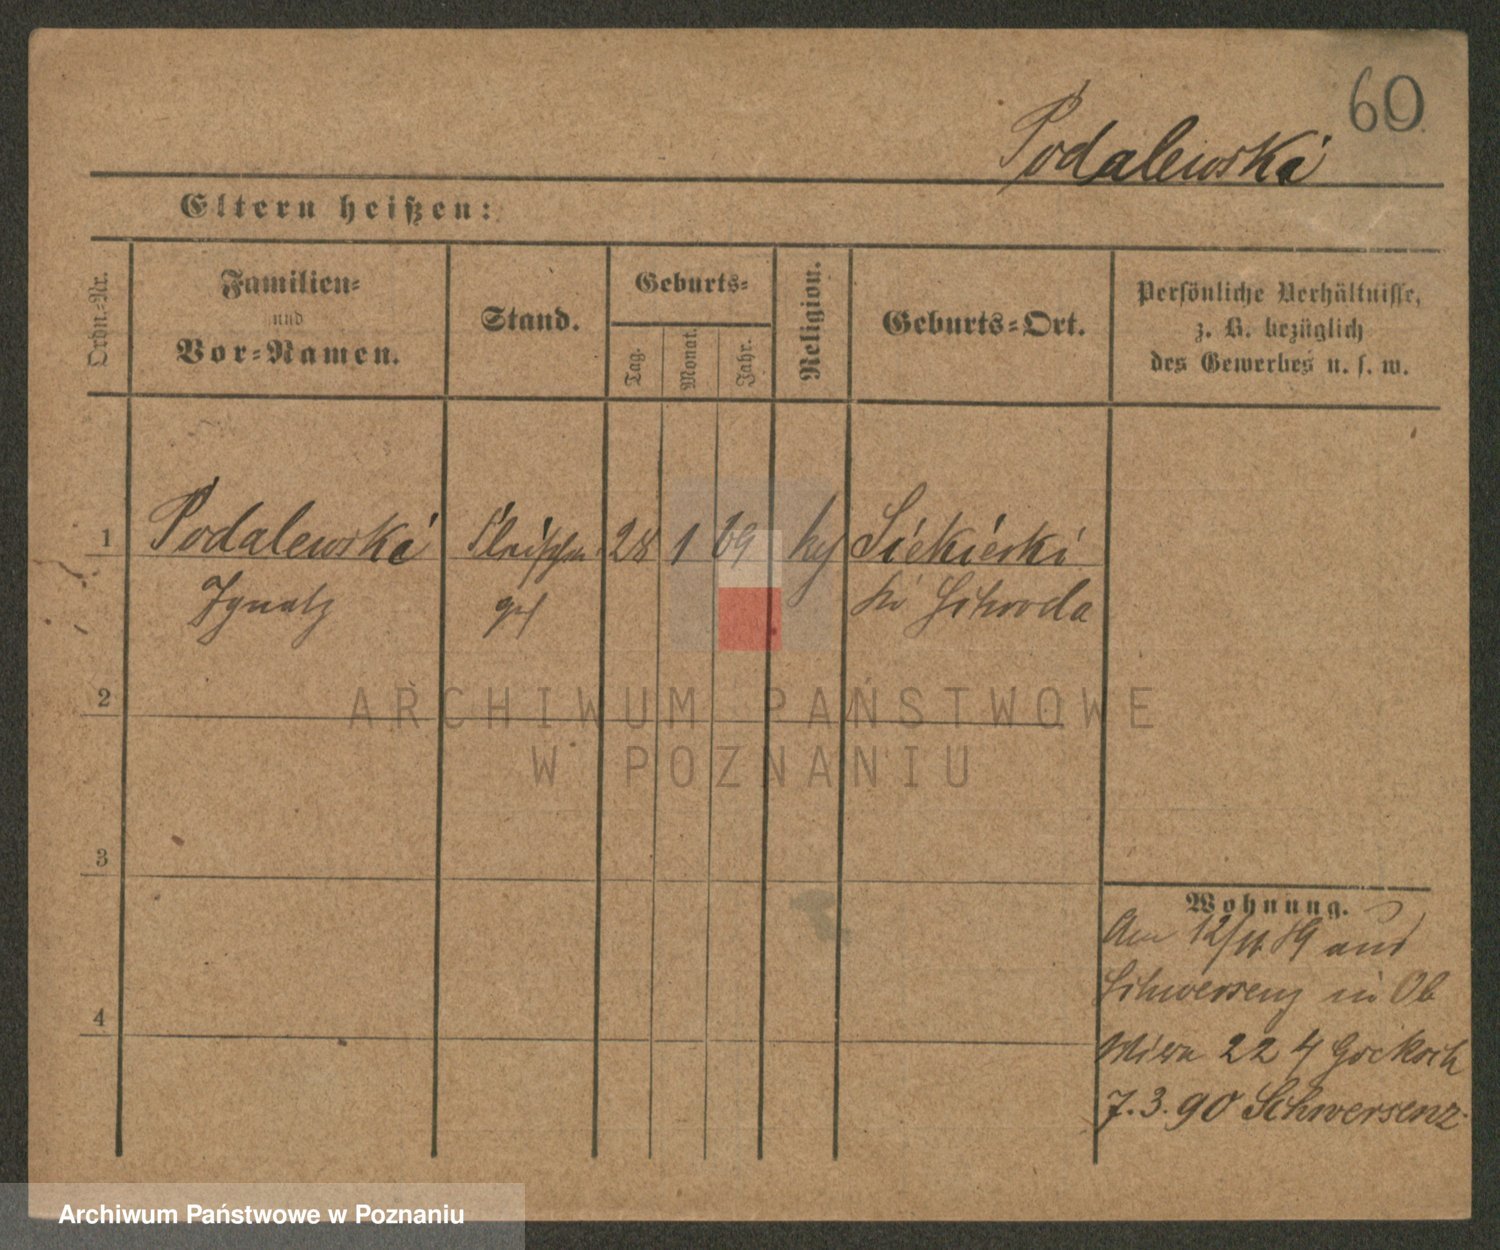 60
Podalewski
Eltern heißen:
Ordn.-Nr.
Familien-
und
Vor-Namen.
Stand.
Geburts-
Tag.
Monat.
Jahr.
Religion.
Geburts-Ort.
Persönliche Verhältnisse,
z. B. bezüglich
des Gewerbes u. s. w.
1 Podalewski Fleischer 28 1 69 Siekierki
Ignatz ges Schroda
2
ARCHIWUM PAŃSTWOWE
W POZNANIU
3
Wohnung.
Am 12/11. 89 aus
Schwersenz in Ob
Wilda 22
7.3.90 Schwersenz.
4
Archiwum Państwowe w Poznaniu